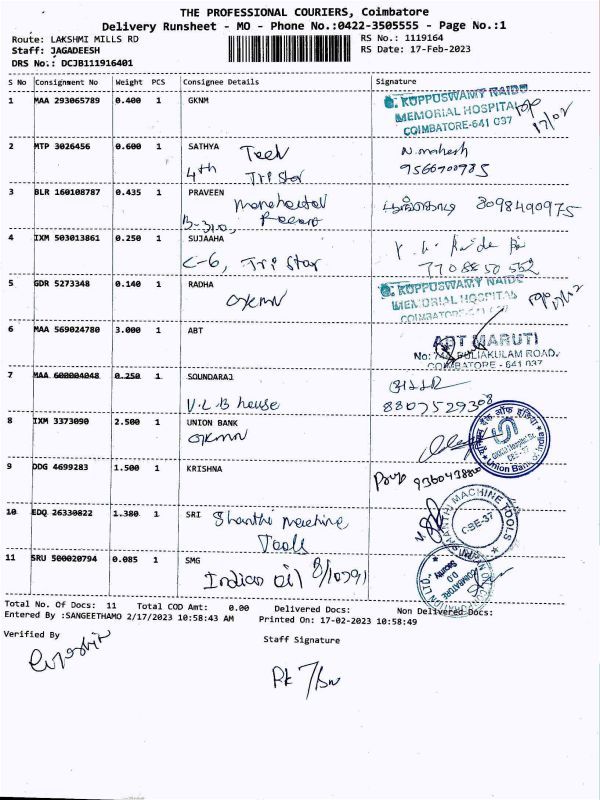 THE PROFESSIONAL COURIERS, Coimbatore
Delivery Runsheet - MO - Phone No.:0422-3505555 - Page No.:1
Route: LAKSHMI MILLS RD
RS No.: 1119164
Staff: JAGADEESH
RS Date: 17-Feb-2023
DRS No.: DCJB111916401
S No Consignment No Weight PCS Consignee Details Signature
1 MAA 293065789 0.400 1 GKNM
G. KUPPUSWAMY NAIDU
MEMORIAL HOSPITAL
COIMBATORE-641 037
17/02
2 MTP 3026456 0.600 1 SATHYA
4th Tri Star
9566700985
3 BLR 160108787 0.435 1 PRAVEEN
3098490975
4 IXM 503013861 0.250 1 SUJAAHA
C-6, Tri Star
7708850552
5 GDR 5273348 0.140 1 RADHA
GKMN
G. KUPPUSWAMY NAIDU
MEMORIAL HOSPITAL
COIMBATORE-641 037
6 MAA 569024780 3.000 1 ABT
ABT MARUTI
PULIAKULAM ROAD.
COIMBATORE - 641 037
7 MAA 600004048 0.250 1 SOUNDARAJ
V.L.B house
8807529308
8 IXM 3373090 2.500 1 UNION BANK
GKMN
Union Bank of India
9 DDG 4699283 1.500 1 KRISHNA
9360438800
10 EDQ 26330822 1.380 1 SRI
Shanthi machine
Tools
SHANTHI MACHINE TOOLS
CBE-37
11 SRU 500020794 0.085 1 SMG
Indian oil
Security
COIMBATORE
Total No. Of Docs: 11 Total COD Amt: 0.00 Delivered Docs: Non Delivered Docs:
Entered By :SANGEETHAMO 2/17/2023 10:58:43 AM Printed On: 17-02-2023 10:58:49
Verified By
Staff Signature